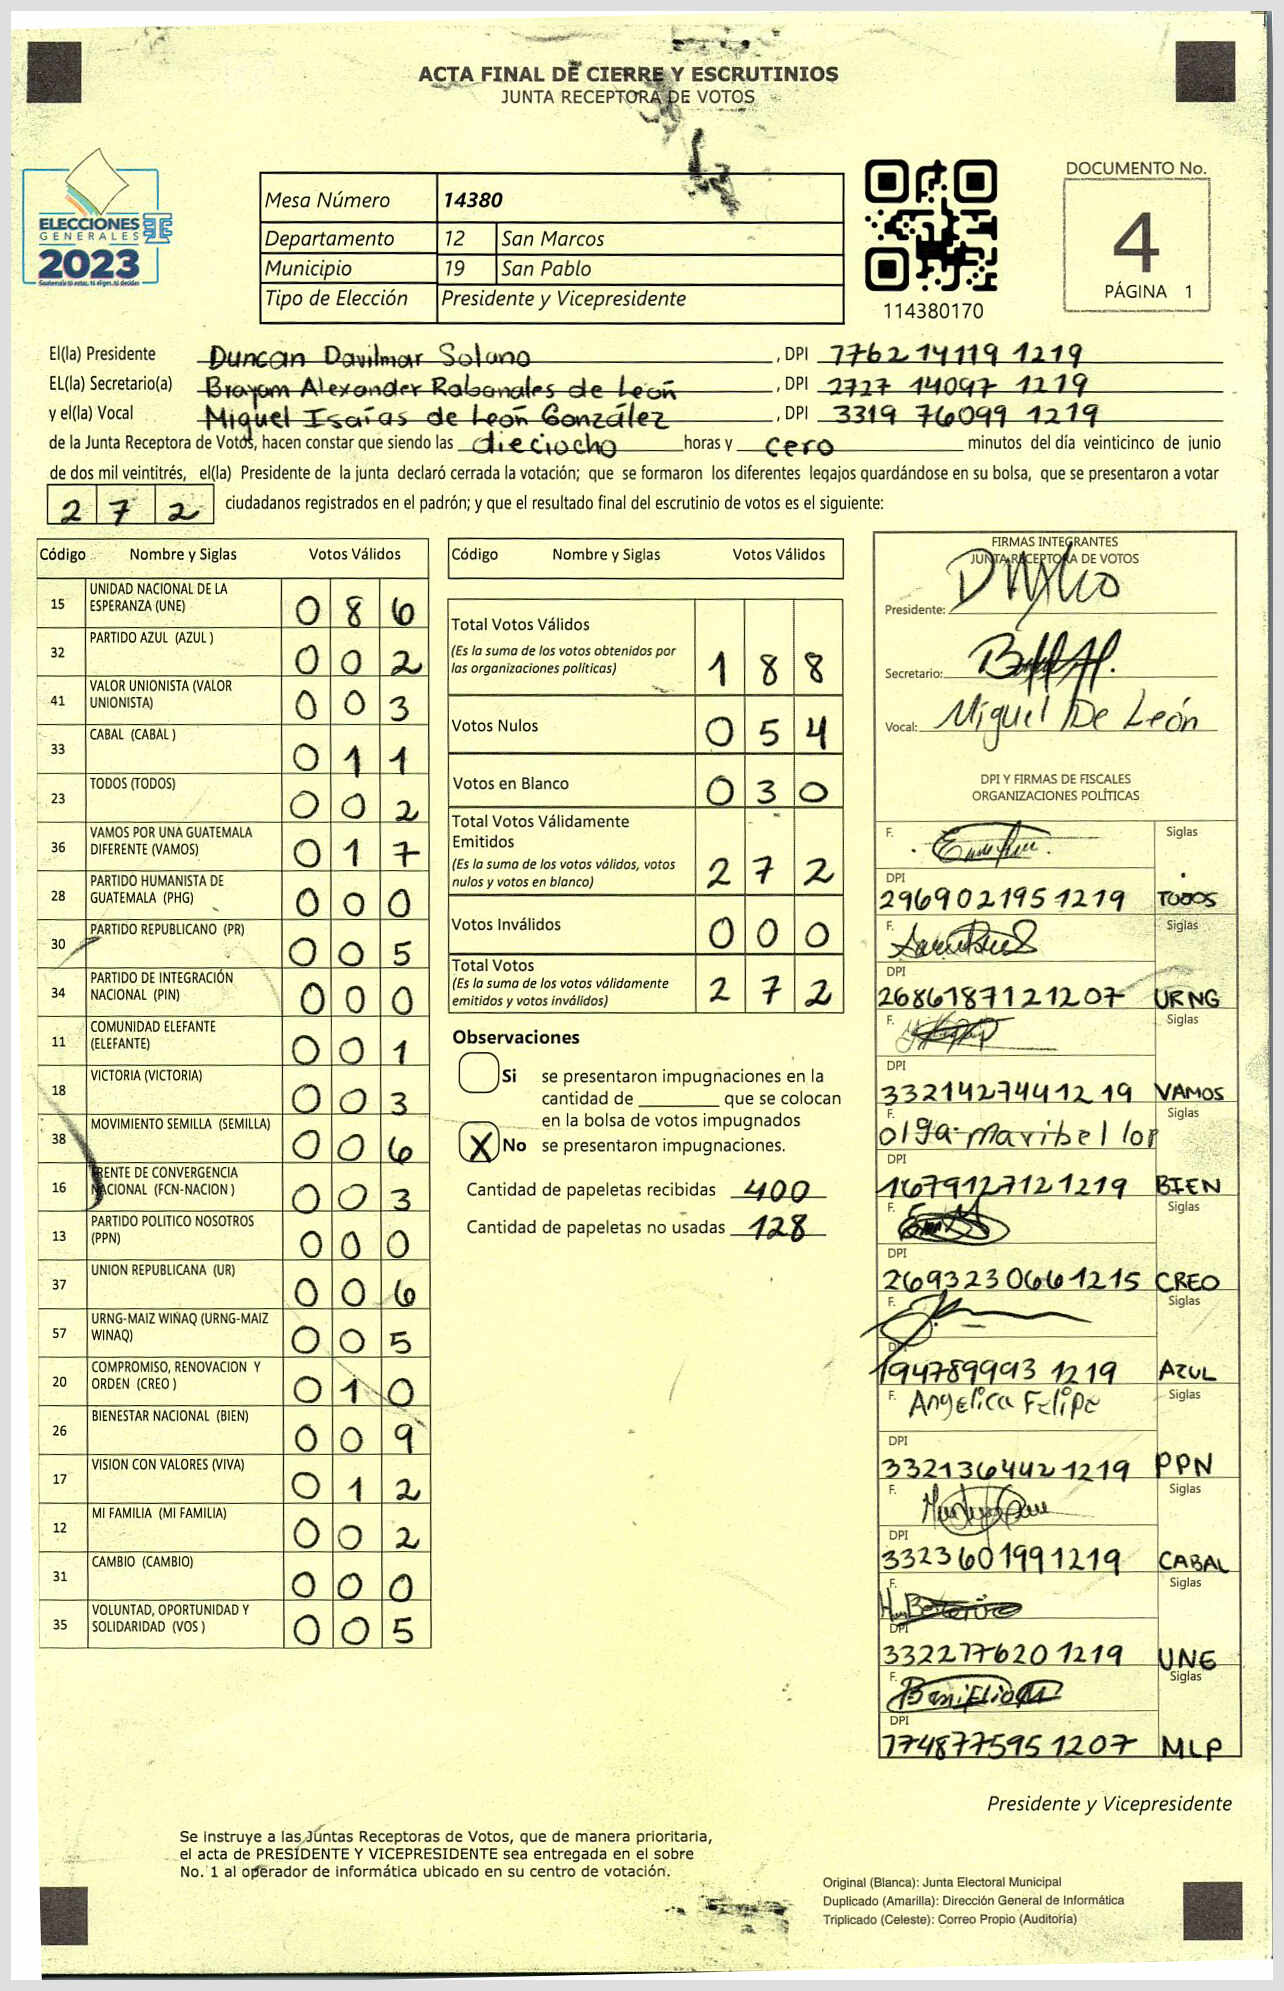 ACTA FINAL DE CIERRE Y ESCRUTINIOS
JUNTA RECEPTORA DE VOTOS
ELECCIONES
GENERALES
2023
Mesa Número 14380
Departamento 12 San Marcos
Municipio 19 San Pablo
Tipo de Elección Presidente y Vicepresidente
114380170
DOCUMENTO No.
4
PÁGINA 1
El(la) Presidente Duncan Davilmar Solano, DPI 7762 14119 1219
EL(la) Secretario(a) Brayam Alexander Rabanales de León, DPI 2727 14097 1219
y el(la) Vocal Miguel Isaías de León González, DPI 3319 76099 1219
de la Junta Receptora de Votos, hacen constar que siendo las dieciocho horas y cero minutos del día veinticinco de junio
de dos mil veintitrés, el(la) Presidente de la junta declaró cerrada la votación; que se formaron los diferentes legajos guardándose en su bolsa, que se presentaron a votar
272 ciudadanos registrados en el padrón; y que el resultado final del escrutinio de votos es el siguiente:
Código Nombre y Siglas Votos Válidos
15 UNIDAD NACIONAL DE LA ESPERANZA (UNE) 086
32 PARTIDO AZUL (AZUL ) 002
41 VALOR UNIONISTA (VALOR UNIONISTA) 003
33 CABAL (CABAL ) 011
23 TODOS (TODOS) 002
36 VAMOS POR UNA GUATEMALA DIFERENTE (VAMOS) 017
28 PARTIDO HUMANISTA DE GUATEMALA (PHG) 000
30 PARTIDO REPUBLICANO (PR) 005
34 PARTIDO DE INTEGRACIÓN NACIONAL (PIN) 000
11 COMUNIDAD ELEFANTE (ELEFANTE) 001
18 VICTORIA (VICTORIA) 003
38 MOVIMIENTO SEMILLA (SEMILLA) 006
16 FRENTE DE CONVERGENCIA NACIONAL (FCN-NACION ) 003
13 PARTIDO POLITICO NOSOTROS (PPN) 000
37 UNION REPUBLICANA (UR) 006
57 URNG-MAIZ WINAQ (URNG-MAIZ WINAQ) 005
20 COMPROMISO, RENOVACION Y ORDEN (CREO ) 010
26 BIENESTAR NACIONAL (BIEN) 009
17 VISION CON VALORES (VIVA) 012
12 MI FAMILIA (MI FAMILIA) 002
31 CAMBIO (CAMBIO) 000
35 VOLUNTAD, OPORTUNIDAD Y SOLIDARIDAD (VOS ) 005
Código Nombre y Siglas Votos Válidos
Total Votos Válidos
(Es la suma de los votos obtenidos por
las organizaciones políticas) 188
Votos Nulos 054
Votos en Blanco 030
Total Votos Válidamente
Emitidos
(Es la suma de los votos válidos, votos
nulos y votos en blanco) 272
Votos Inválidos 000
Total Votos
(Es la suma de los votos válidamente
emitidos y votos inválidos) 272
Observaciones
Si se presentaron impugnaciones en la
cantidad de ________ que se colocan
en la bolsa de votos impugnados
X No se presentaron impugnaciones.
Cantidad de papeletas recibidas 400
Cantidad de papeletas no usadas 128
FIRMAS INTEGRANTES
JUNTA RECEPTORA DE VOTOS
Presidente:
Secretario:
Vocal: Miguel De León
DPI Y FIRMAS DE FISCALES
ORGANIZACIONES POLÍTICAS
F. Siglas
DPI
2969021951219 TODOS
F. Siglas
DPI
2686187121207 URNG
F. Siglas
DPI
3321427441219 VAMOS
F. Olga Maribel lop Siglas
DPI
1679127121219 BIEN
F. Siglas
DPI
2693230661215 CREO
F. Siglas
DPI
194789993 1219 AZUL
F. Angelica Felipe Siglas
DPI
3321364421219 PPN
F. Siglas
DPI
3323601991219 CABAL
F. Siglas
DPI
3322776201219 UNE
F. Siglas
DPI
1748775951207 MLP
Presidente y Vicepresidente
Se instruye a las Juntas Receptoras de Votos, que de manera prioritaria,
el acta de PRESIDENTE Y VICEPRESIDENTE sea entregada en el sobre
No. 1 al operador de informática ubicado en su centro de votación.
Original (Blanca): Junta Electoral Municipal
Duplicado (Amarilla): Dirección General de Informática
Triplicado (Celeste): Correo Propio (Auditoría)